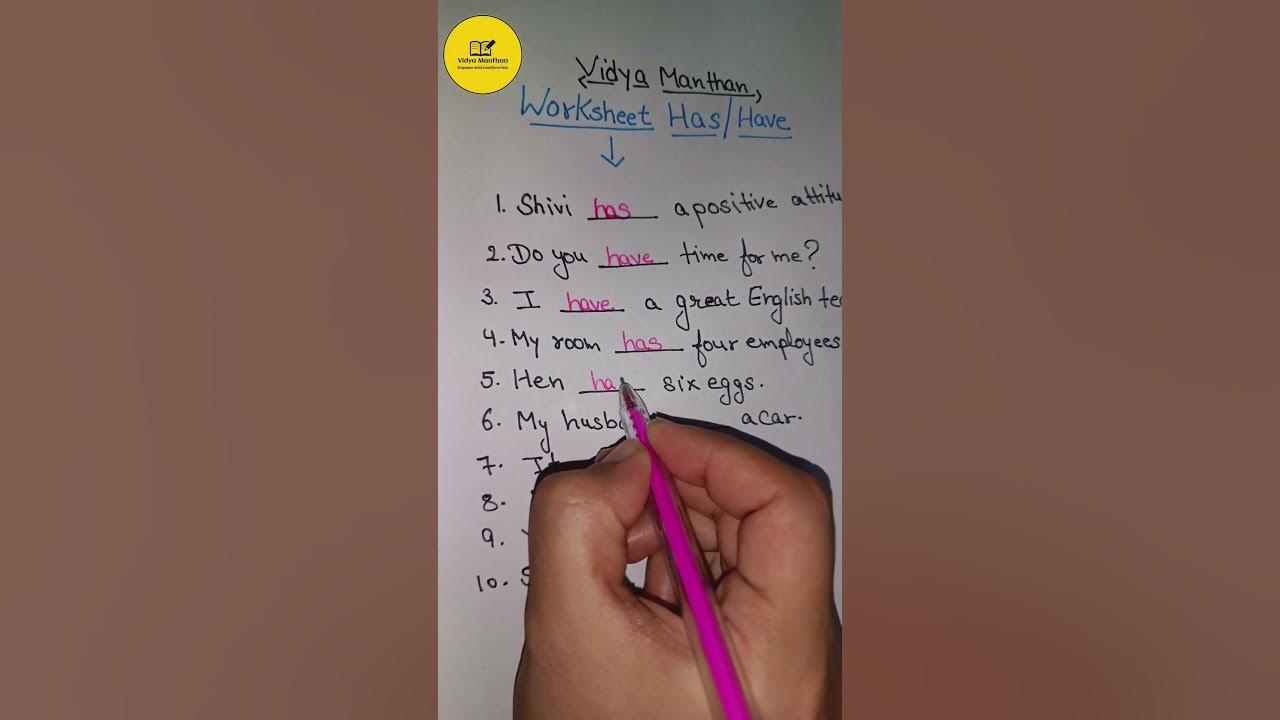 Vidya Manthan
Empower mind transform lives
Vidya Manthan,
Worksheet Has/Have
1. Shivi has a positive attitu
2. Do you have time for me?
3. I have a great English tea
4. My room has four employees
5. Hen ha six eggs.
6. My husb a car.
7. It
8.
9.
10. S